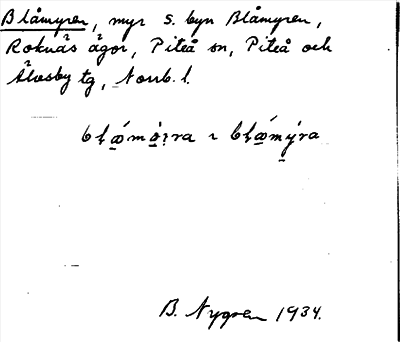 Blåmyren, myr S. byn Blåmyren,
Roknäs ägor, Piteå sn, Piteå och
Älvsby tg, Norrb. l.
B. Nygren 1934.